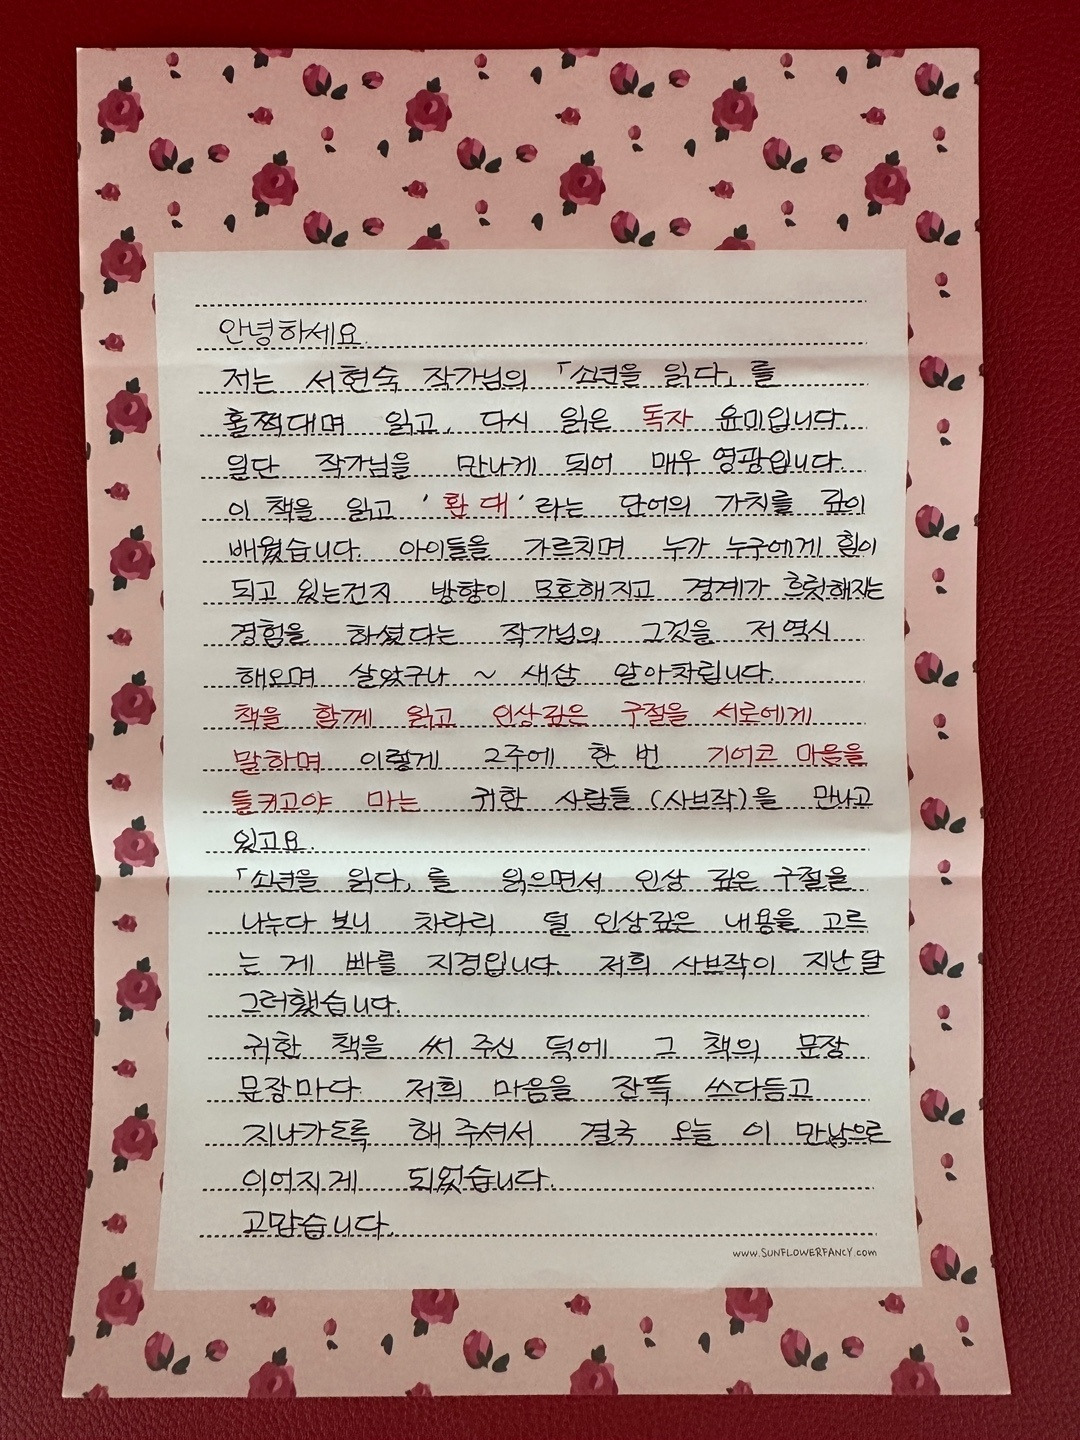 안녕하세요.
저는 서현숙 작가님의 「소년을 읽다」를
훌쩍대며 읽고, 다시 읽은 독자 윤미입니다.
일단 작가님을 만나게 되어 매우 영광입니다.
이 책을 읽고 '환대'라는 단어의 가치를 깊이
배웠습니다. 아이들을 가르치며 누가 누구에게 힘이
되고 있는건지 방향이 모호해지고 경계가 흐릿해지는
경험을 하셨다는 작가님의 그것을 저 역시
해오며 살았구나 ~ 새삼 알아차립니다.
책을 함께 읽고 인상깊은 구절을 서로에게
말하며 이렇게 2주에 한 번 기어코 마음을
들키고야 마는 귀한 사람들 (사브작)을 만나고
있고요.
「소년을 읽다」를 읽으면서 인상 깊은 구절을
나누다 보니 차라리 덜 인상깊은 내용을 고르
는 게 빠를 지경입니다. 저희 사브작이 지난달
그러했습니다.
귀한 책을 써 주신 덕에 그 책의 문장
문장마다 저희 마음을 잔뜩 쓰다듬고
지나가도록 해 주셔서 결국 오늘 이 만남으로
이어지게 되었습니다.
고맙습니다.
www.SUNFLOWERFANCY.com